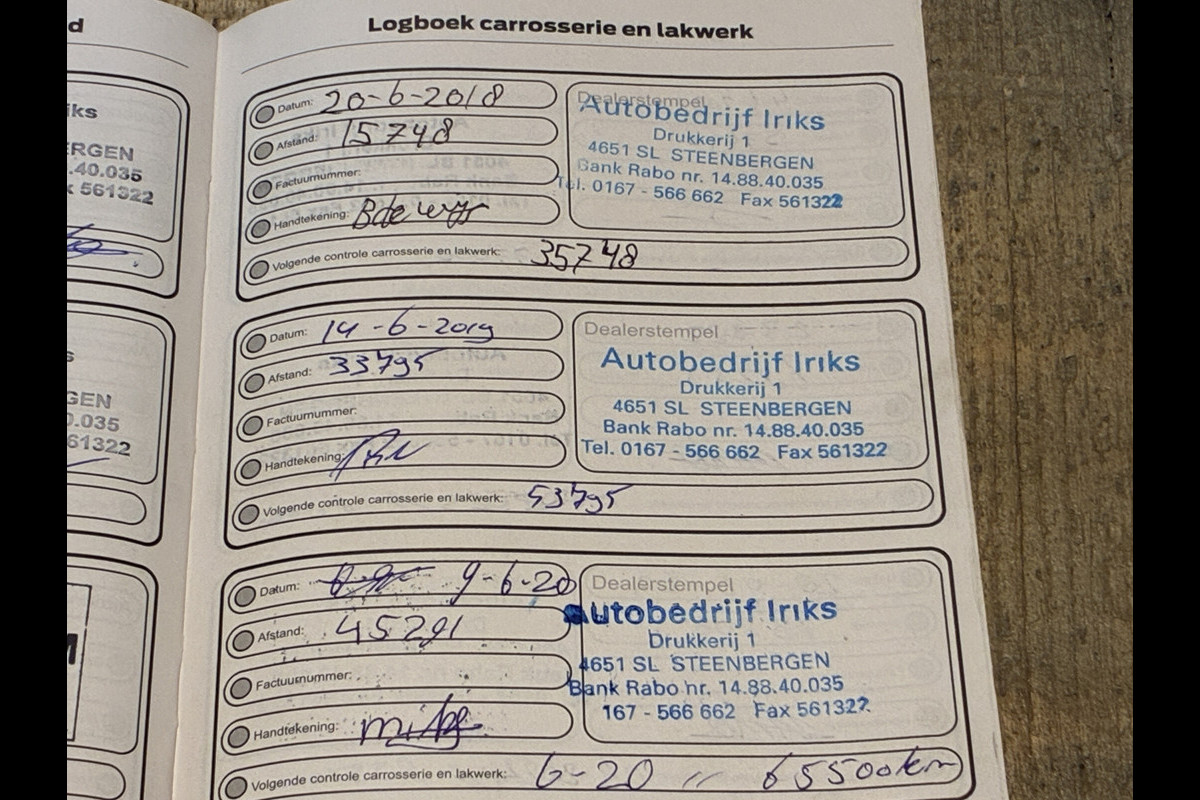 d
Logboek carrosserie en lakwerk
iks
ERGEN
.40.035
x 561322
Datum: 20-6-2018
Afstand: 15748
Factuurnummer:
Handtekening:
Volgende controle carrosserie en lakwerk: 35748
Dealerstempel
Autobedrijf Iriks
Drukkerij 1
4651 SL STEENBERGEN
Bank Rabo nr. 14.88.40.035
Tel. 0167 - 566 662 Fax 561322
s
GEN
0.035
61322
Datum: 14-6-2019
Afstand: 33795
Factuurnummer:
Handtekening:
Volgende controle carrosserie en lakwerk: 53795
Dealerstempel
Autobedrijf Iriks
Drukkerij 1
4651 SL STEENBERGEN
Bank Rabo nr. 14.88.40.035
Tel. 0167 - 566 662 Fax 561322
M
Datum: 9-6-20
Afstand: 45291
Factuurnummer:
Handtekening:
Volgende controle carrosserie en lakwerk: 6-20 " 65500km
Dealerstempel
Autobedrijf Iriks
Drukkerij 1
4651 SL STEENBERGEN
Bank Rabo nr. 14.88.40.035
167 - 566 662 Fax 561322